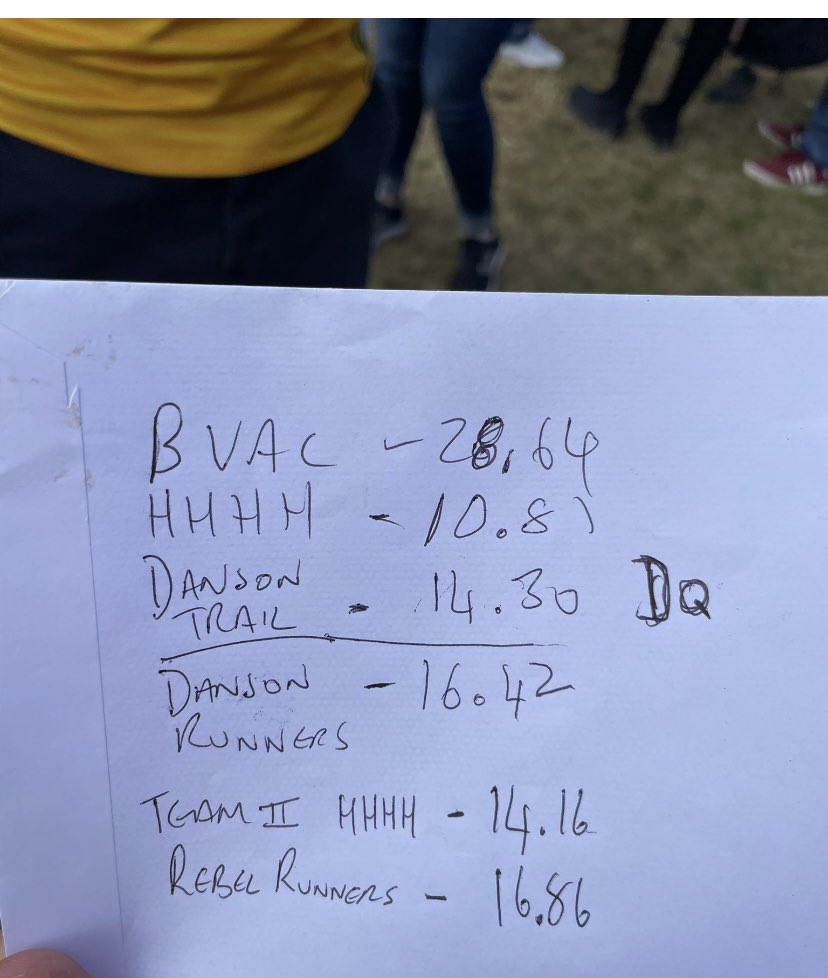 BVAC - 28.64
HHHH - 10.81
DANSON
TRAIL - 14.30 DQ
DANSON - 16.42
RUNNERS
TEAM II HHHH - 14.16
REBEL RUNNERS - 16.86